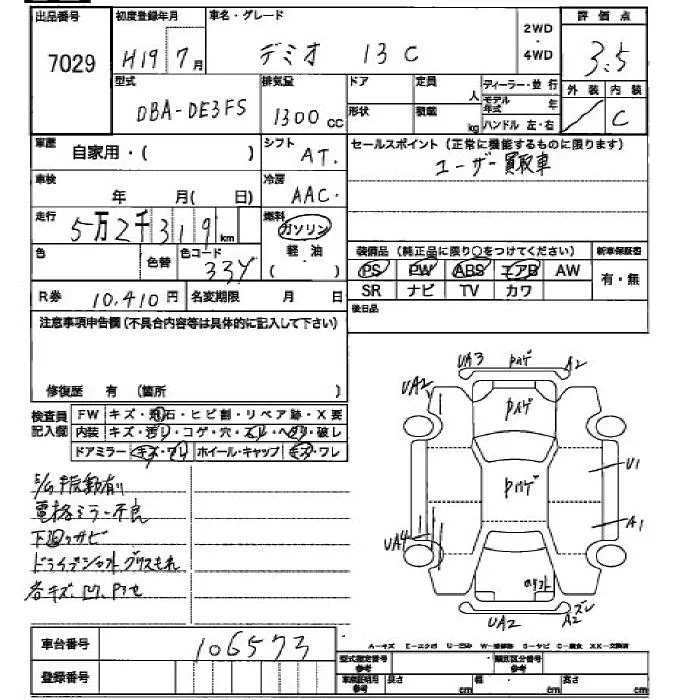 出品番号 初度登録年月 車名・グレード 2WD・4WD 評価点
7029 H19 7月 デミオ 13C 3.5
型式 排気量 ドア 定員 人 ディーラー・並行 外装 内装
DBA-DE3FS 1300cc 形状 積載 kg モデル年式 年 C
ハンドル 左・右
車歴 自家用・( ) シフト AT. セールスポイント(正常に機能するものに限ります)
ユーザー買取車
車検 年 月( 日) 冷房 AAC.
走行 5万2千319km 燃料 ガソリン
軽油
( )
色 色替 色コード 33Y 装備品(純正品に限り○をつけてください) 新車保証書
PS PW ABS エアB AW 有・無
R券 10,410円 名変期限 月 日 SR ナビ TV カワ
注意事項申告欄(不具合内容等は具体的に記入して下さい) 後日品
修復歴 有 (箇所 )
検査員記入欄 FW キズ・飛石・ヒビ割・リペア跡・X要
内装 キズ・汚れ・コゲ・穴・スレ・ヘタリ・破レ
ドアミラー キズ・ワレ ホイール・キャップ キズ・ワレ
振動有り
電格ミラー不良
下廻りサビ
ドライブシャフトグリスもれ
各キズ、凹、
UA3 Pハゲ A2
UA2 Pハゲ
Pハゲ U1
UA4 A1
UA2 A2 ズレ
車台番号 106573
登録番号
A-キズ E-エクボ U-凹み W-補修跡 S-サビ C-腐食 XX-交換済
型式指定番号参考 類別区分番号参考
車庫証明用参考 長さ cm 幅 cm 高さ cm